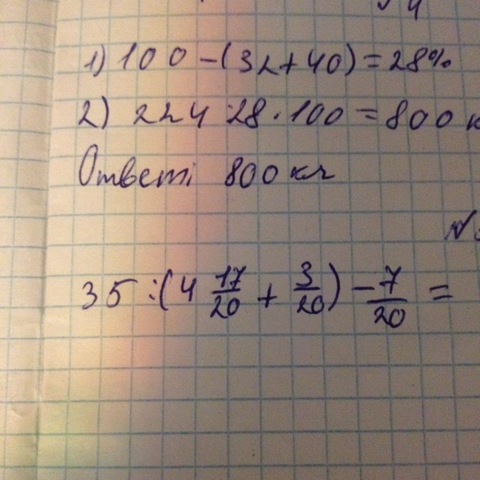 1) 100 - (32+40) = 28%
2) 224:28·100 = 800 к
Ответ: 800 кг
№
35 : (4 17/20 + 3/20) - 7/20 =